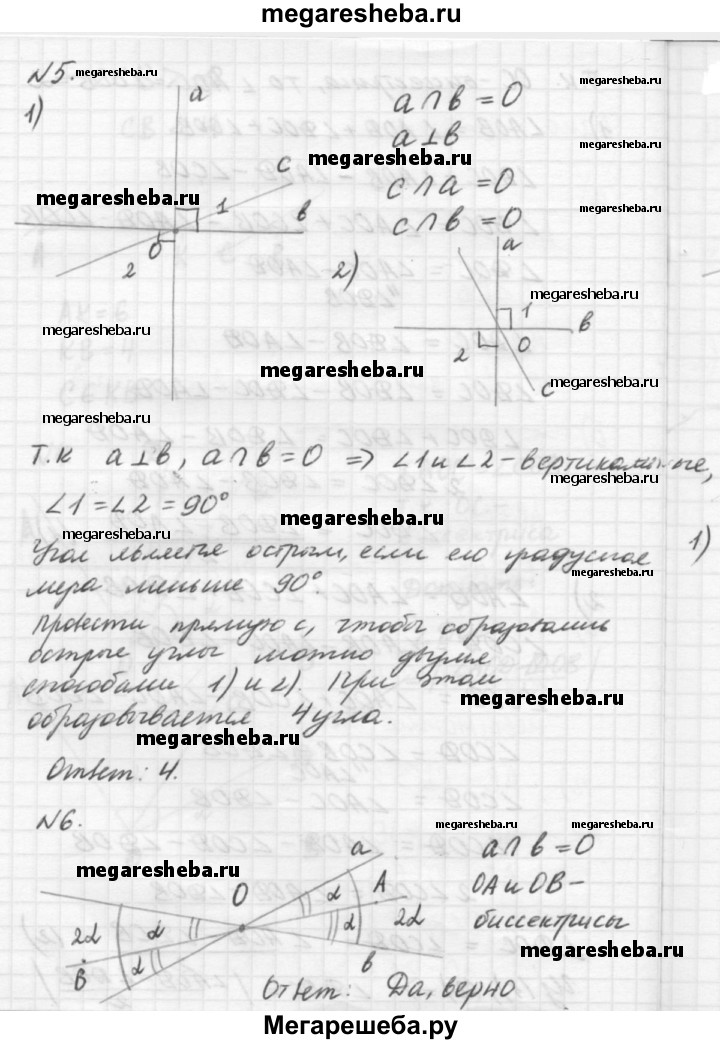 megaresheba.ru
№5. megaresheba.ru
1)
a
c
1
в
O
2
a ∩ в = O
a ⊥ в
megaresheba.ru
megaresheba.ru
megaresheba.ru
c ∩ a = O
megaresheba.ru
c ∩ в = O
megaresheba.ru
2)
a
megaresheba.ru
1
в
2
O
c
megaresheba.ru
megaresheba.ru
megaresheba.ru
megaresheba.ru
Т.к a ⊥ в, a ∩ в = O ⇒ ∠1 и ∠2 - вертикальные,
megaresheba.ru
∠1 = ∠2 = 90°
megaresheba.ru
megaresheba.ru
1)
Угол является острым, если его градусная
megaresheba.ru
мера меньше 90°
Провести прямую c, чтобы образовались
острые углы можно двумя
способами 1) и 2). При этом
megaresheba.ru
образовывается 4 угла.
megaresheba.ru
Ответ: 4.
№6.
megaresheba.ru
megaresheba.ru
megaresheba.ru
a
O
α
A
2α
α
2α
α
B
α
в
a ∩ в = O
OA и OB -
биссектрисы
megaresheba.ru
Ответ: Да, верно
Мегарешеба.ру